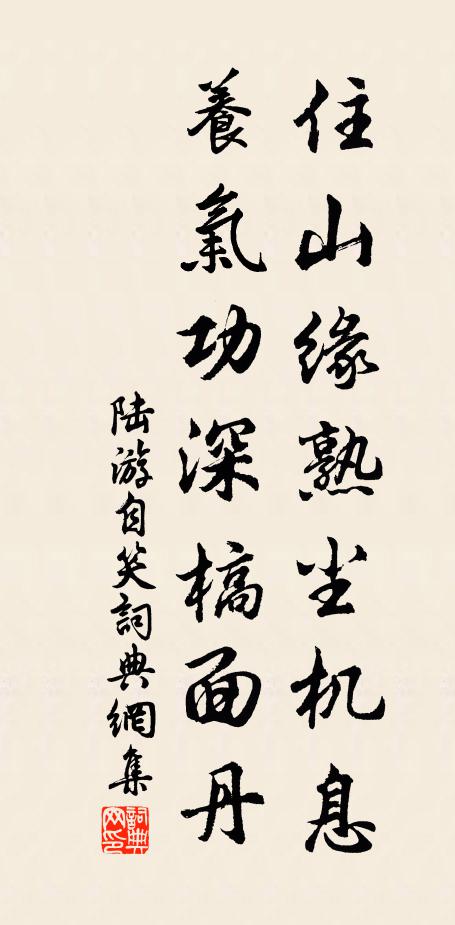 住山缘熟尘机息
養氣功深槁面丹
陆游自笑詞典網集
詞典網印